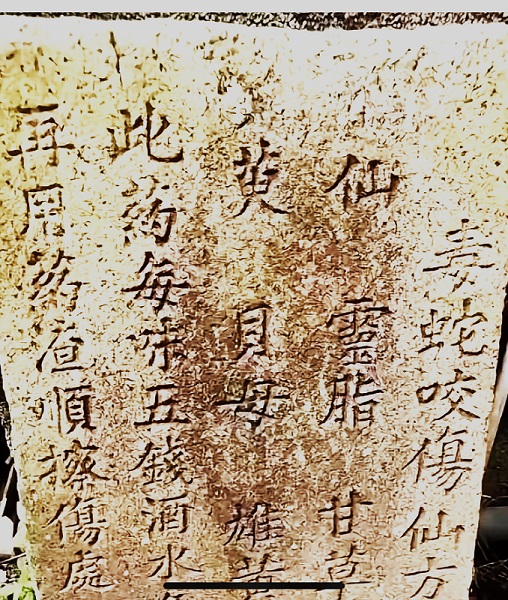 毒蛇咬傷仙方
仙 靈脂 甘草
萸 貝母 雄黃
此药每味五錢酒水
再用药查順擦傷處